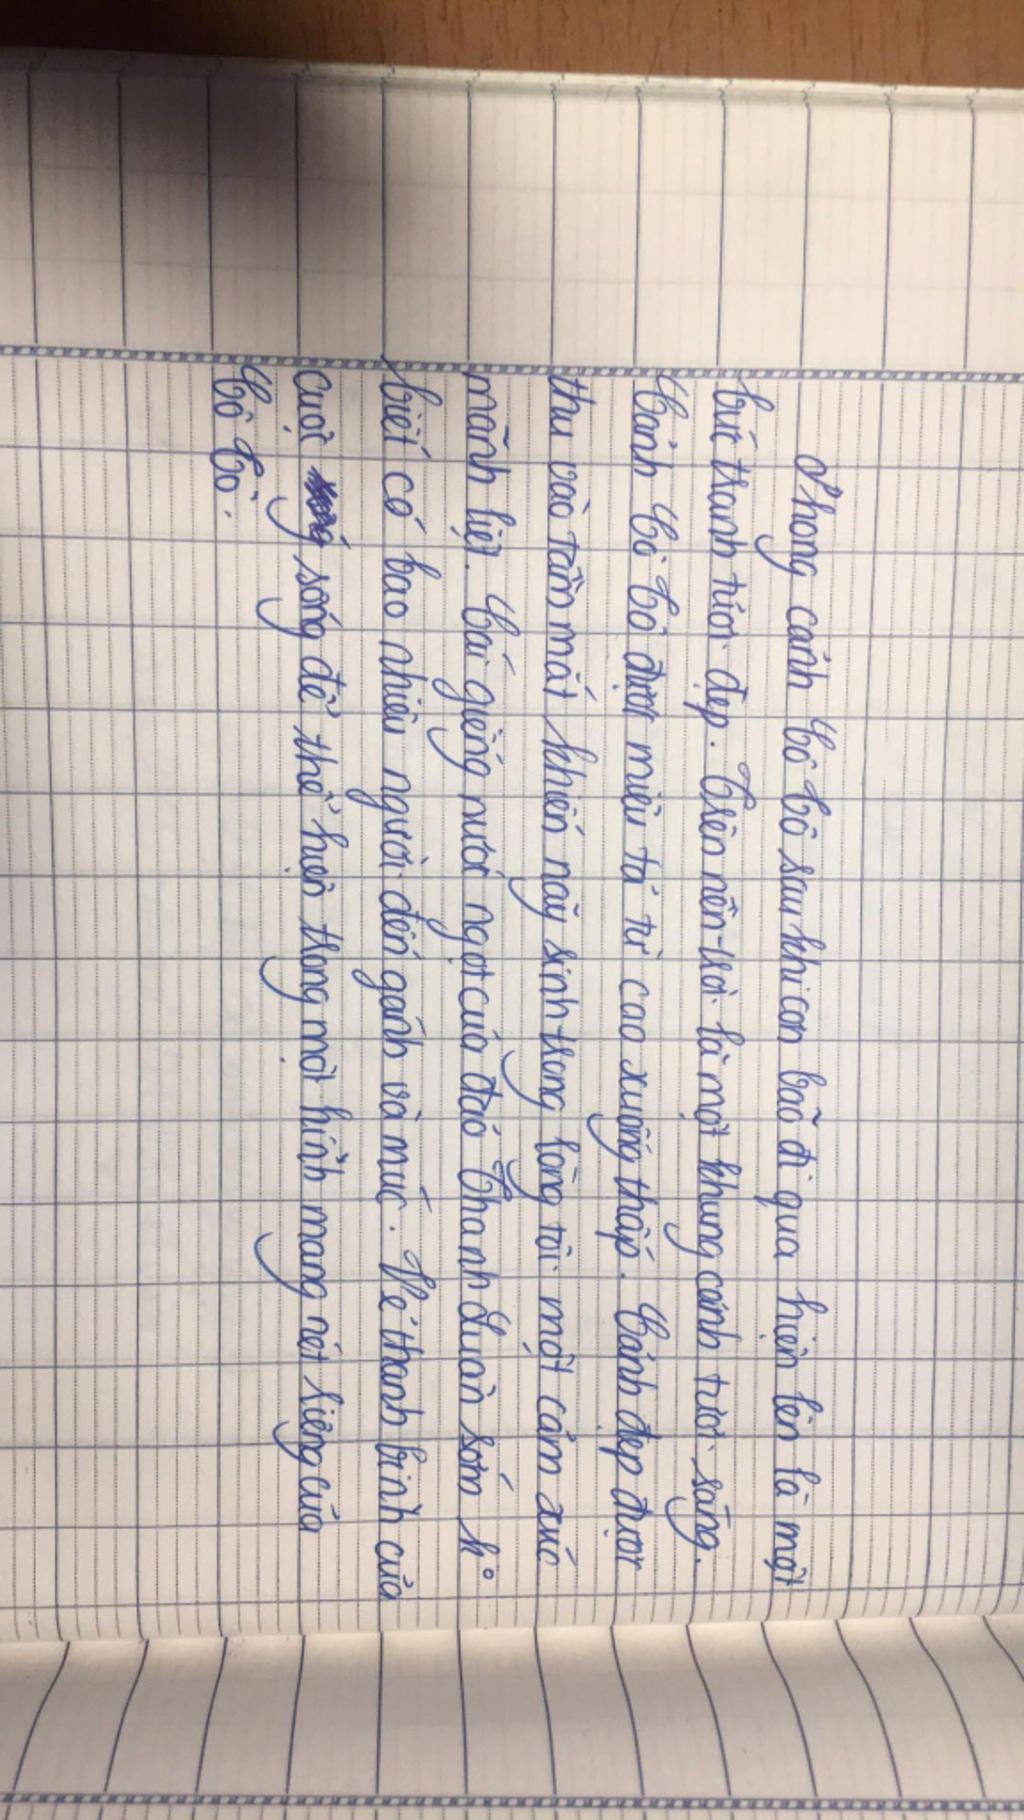 Phong cảnh Cô Tô sau khi cơn bão đi qua hiện lên là một
bức tranh tươi đẹp. Trên nền trời là một khung cảnh tươi sáng.
Cảnh Cô Tô được miêu tả từ cao xuống thấp. Cảnh đẹp được
thu vào tầm mắt khiến nảy sinh trong lòng tôi một cảm xúc
mãnh liệt. Cái giếng nước ngọt của đảo Thanh Luân sớm k°
biết có bao nhiêu người đến gánh và múc. Vẻ thanh bình của
cuộc sống để thể hiện trong một hình mang nét riêng của
Cô Tô.